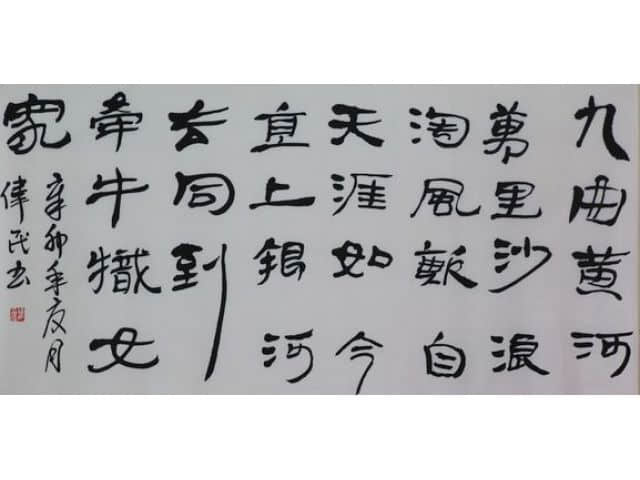 九曲黃河
萬里沙浪
淘風簸自
天涯如今
直上銀河
去同到
牽牛織女
家
辛卯年夏月
偉民书